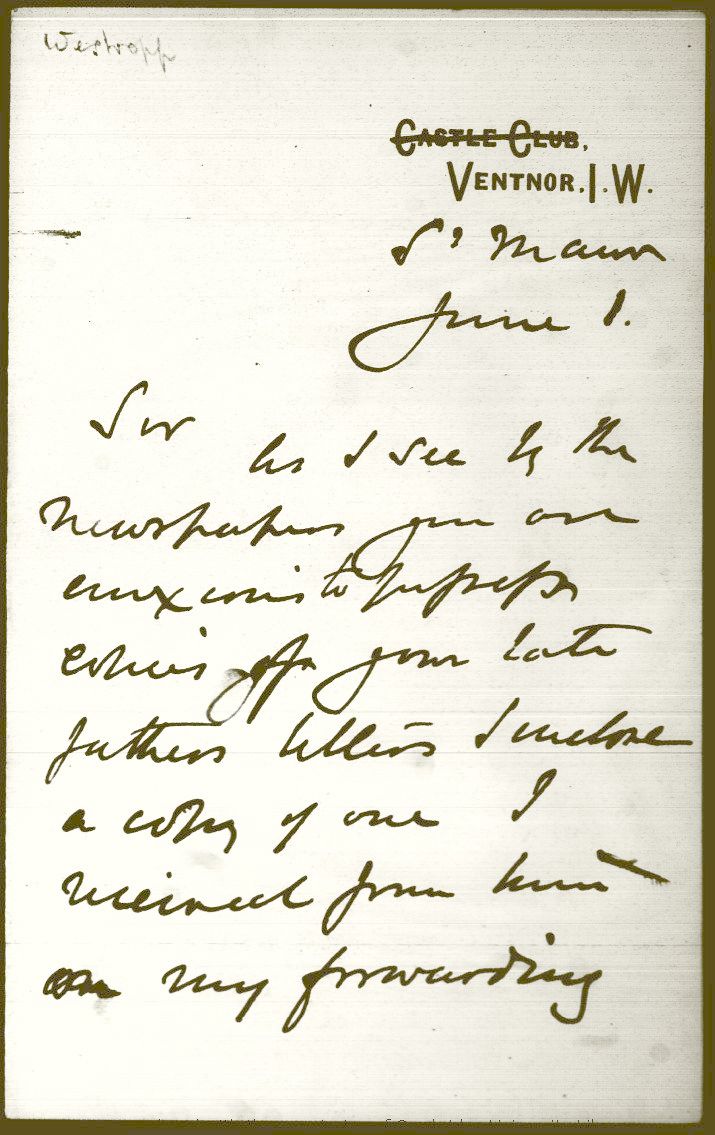 Westropp
CASTLE CLUB,
VENTNOR. I. W.
St Maur
June 1.
Sir
As I see by the
newspapers you are
anxious to possess
copies of your late
fathers letters I enclose
a copy of one I
received from him
on my forwarding